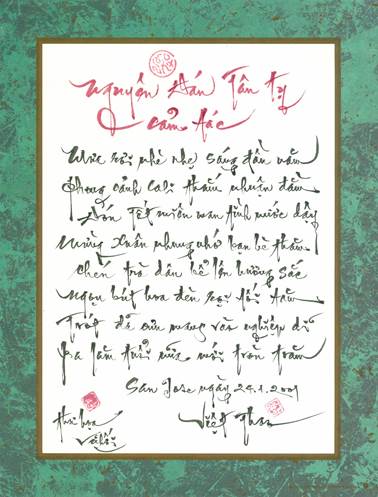 Nguyên Đán Tân Tỵ
cảm tác
Mưa rơi nhè nhẹ sáng đầu năm
Phong cảnh Cali thấm nhuận đầm
Đón Tết miên man tình nước dậy
Mừng Xuân nhung nhớ bạn bè thăm
Chén trà dâu bể lộn hương sắc
Ngọn bút hoa đèn rọi tối tăm
Trót đã cưu mang văn nghiệp dĩ
Ba lăm tuổi nữa mới tròn trăm
San Jose ngày 24.1.2001
Thư họa Việt
Vũ Hối